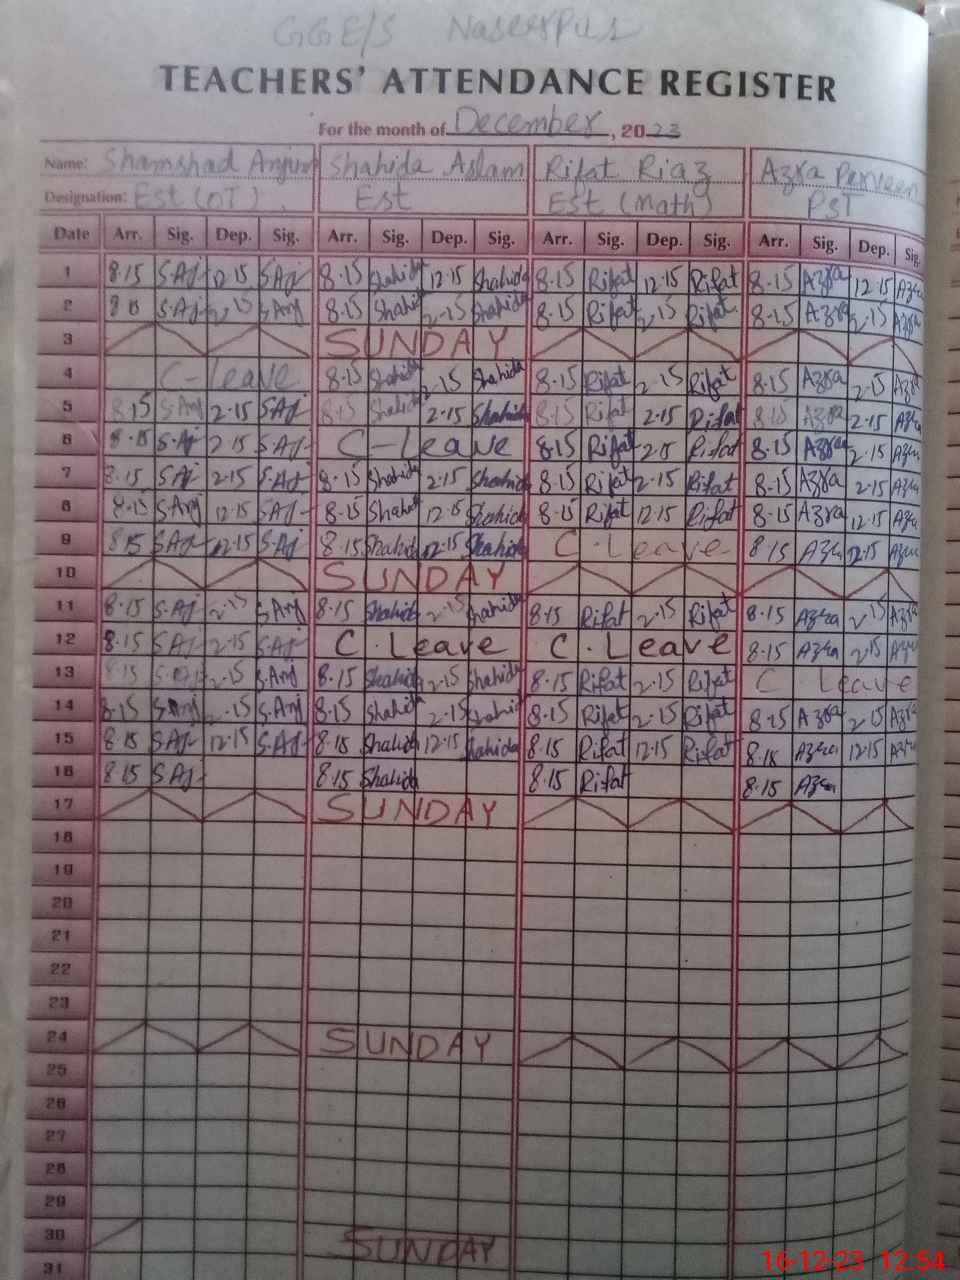 GGE/S Naseerpur
TEACHERS' ATTENDANCE REGISTER
For the month of December, 2023
Name: Shamshad Anjum Shahida Aslam Rifat Riaz Azra Parveen
Designation: Est (OT). Est Est (Math) PST
Date Arr. Sig. Dep. Sig. Arr. Sig. Dep. Sig. Arr. Sig. Dep. Sig. Arr. Sig. Dep. Sig.
1 8.15 S.Aj 12.15 S.Aj 8.15 Shahida 12.15 Shahida 8.15 Rifat 12.15 Rifat 8.15 Azra 12.15 Azra
2 8.15 S.Aj 2.15 S.Anj 8.15 Shahida 2.15 Shahida 8.15 Rifat 2.15 Rifat 8.15 Azra 2.15 Azra
3 SUNDAY
4 C-Leave 8.15 Shahida 2.15 Shahida 8.15 Rifat 2.15 Rifat 8.15 Azra 2.15 Azra
5 8.15 S.Anj 2.15 S.Aj 8.15 Shahida 2.15 Shahida 8.15 Rifat 2.15 Rifat 8.15 Azra 2.15 Azra
6 8.15 S.Aj 2.15 S.Aj C-Leave 8.15 Rifat 2.15 Rifat 8.15 Azra 2.15 Azra
7 8.15 S.Aj 2.15 S.Aj 8.15 Shahida 2.15 Shahida 8.15 Rifat 2.15 Rifat 8.15 Azra 2.15 Azra
8 8.15 S.Anj 12.15 S.Aj 8.15 Shahida 12.15 Shahida 8.15 Rifat 12.15 Rifat 8.15 Azra 12.15 Azra
9 8.15 S.Aj 12.15 S.Aj 8.15 Shahida 12.15 Shahida C.Leave 8.15 Azra 12.15 Azra
10 SUNDAY
11 8.15 S.Aj 2.15 S.Anj 8.15 Shahida 2.15 Shahida 8.15 Rifat 2.15 Rifat 8.15 Azra 2.15 Azra
12 8.15 S.Aj 2.15 S.Aj C.Leave C.Leave 8.15 Azra 2.15 Azra
13 8.15 2.15 S.Anj 8.15 Shahida 2.15 Shahida 8.15 Rifat 2.15 Rifat C Leave
14 8.15 S.Anj 2.15 S.Anj 8.15 Shahida 2.15 Shahida 8.15 Rifat 2.15 Rifat 8.15 Azra 2.15 Azra
15 8.15 S.Aj 12.15 S.Aj 8.15 Shahida 12.15 Shahida 8.15 Rifat 12.15 Rifat 8.15 Azra 12.15 Azra
16 8.15 S.Aj 8.15 Shahida 8.15 Rifat 8.15 Azra
17 SUNDAY
18
19
20
21
22
23
24 SUNDAY
25
26
27
28
29
30 SUNDAY
31
16-12-23 12:54